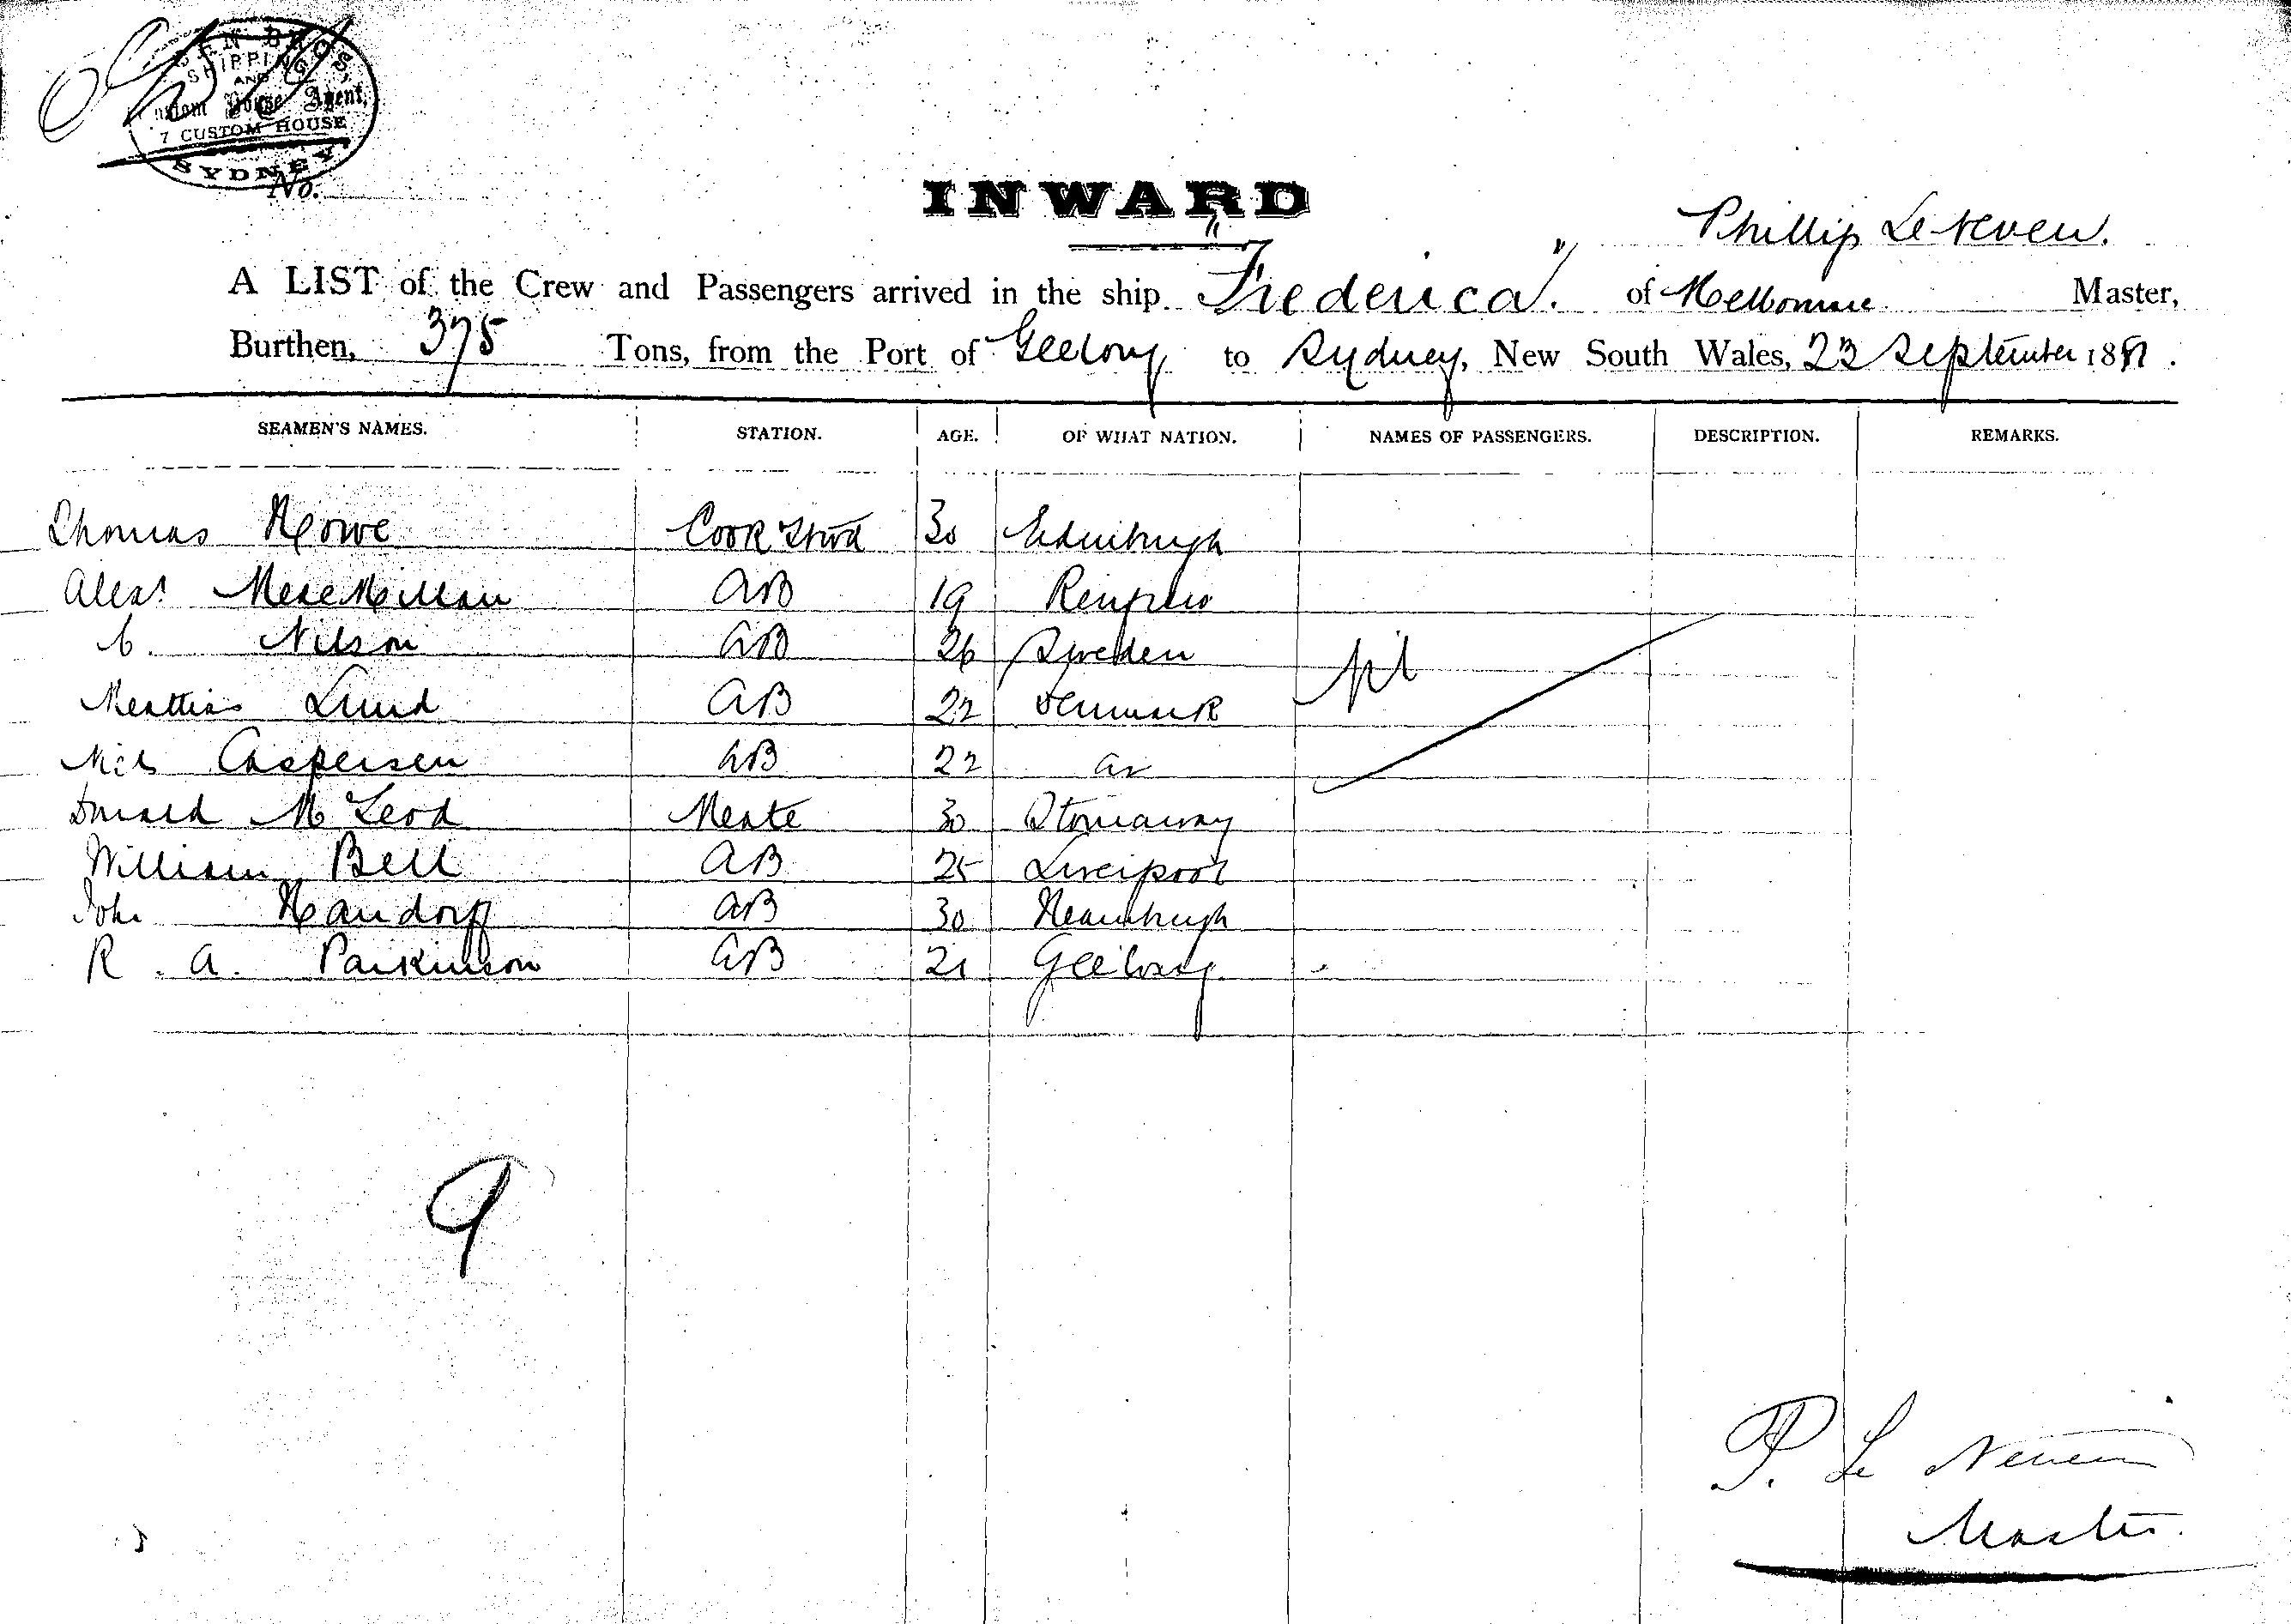 BROS,
SHIPPING
AND
Custom House Agent,
7 CUSTOM HOUSE
SYDNEY
No.
INWARD
Phillip Le Neven.
A LIST of the Crew and Passengers arrived in the ship "Frederica". of Melbourne Master,
Burthen, 375 Tons, from the Port of Geelong to Sydney, New South Wales, 23 September 188
SEAMEN'S NAMES. STATION. AGE. OF WHAT NATION. NAMES OF PASSENGERS. DESCRIPTION. REMARKS.
Thomas Howe Cook Stwd 30 Edinburgh
Alexr MacMillan AB 19 Renfrew
C. Nilson AB 26 Sweden nil
Mattias Lund AB 22 Denmark
Nils Caspersen AB 22 do
Donald McLeod Mate 30 Stornaway
William Bell AB 25 Liverpool
John Handorff AB 30 Hamburgh
R. A. Parkinson AB 21 Geelong
9
P. Le Neven
Master.